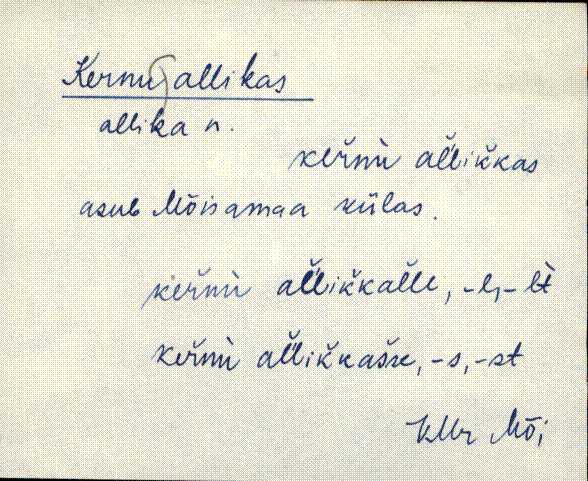 Kernu allikas
allika n.
kēr̆nù al̆lik̆kas
asub Mõisamaa külas.
kēr̆nù al̆lik̆kal̆le, -l, -lt
kēr̆nù al̆lik̆kas̆se, -s, -st
KMr Mõi